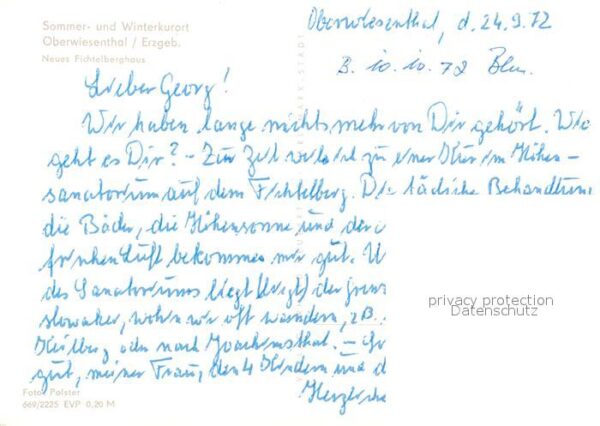 Sommer- und Winterkurort
Oberwiesenthal / Erzgeb.
Neues Fichtelberghaus
Oberwiesenthal, d. 24.9.72
B. 10.10.72
Lieber Georg!
Wir haben lange nichts mehr von Dir gehört. Wie
geht es Dir? - Zur Zeit weile ich zu einer Kur im Höhen-
sanatorium auf dem Fichtelberg. Die tägliche Behandlung
die Bäder, die Höhensonne und der
frischen Luft bekommen mir gut. U
des Sanatoriums liegt (liegt) der
slowakei, wohin wir oft wandern, z.B.
Keilberg oder nach Joachimsthal. -
gut, meiner Frau, den 4 Kindern und d
Herzliche
privacy protection
Datenschutz
Foto: Polster
669/2225 EVP 0,20 M